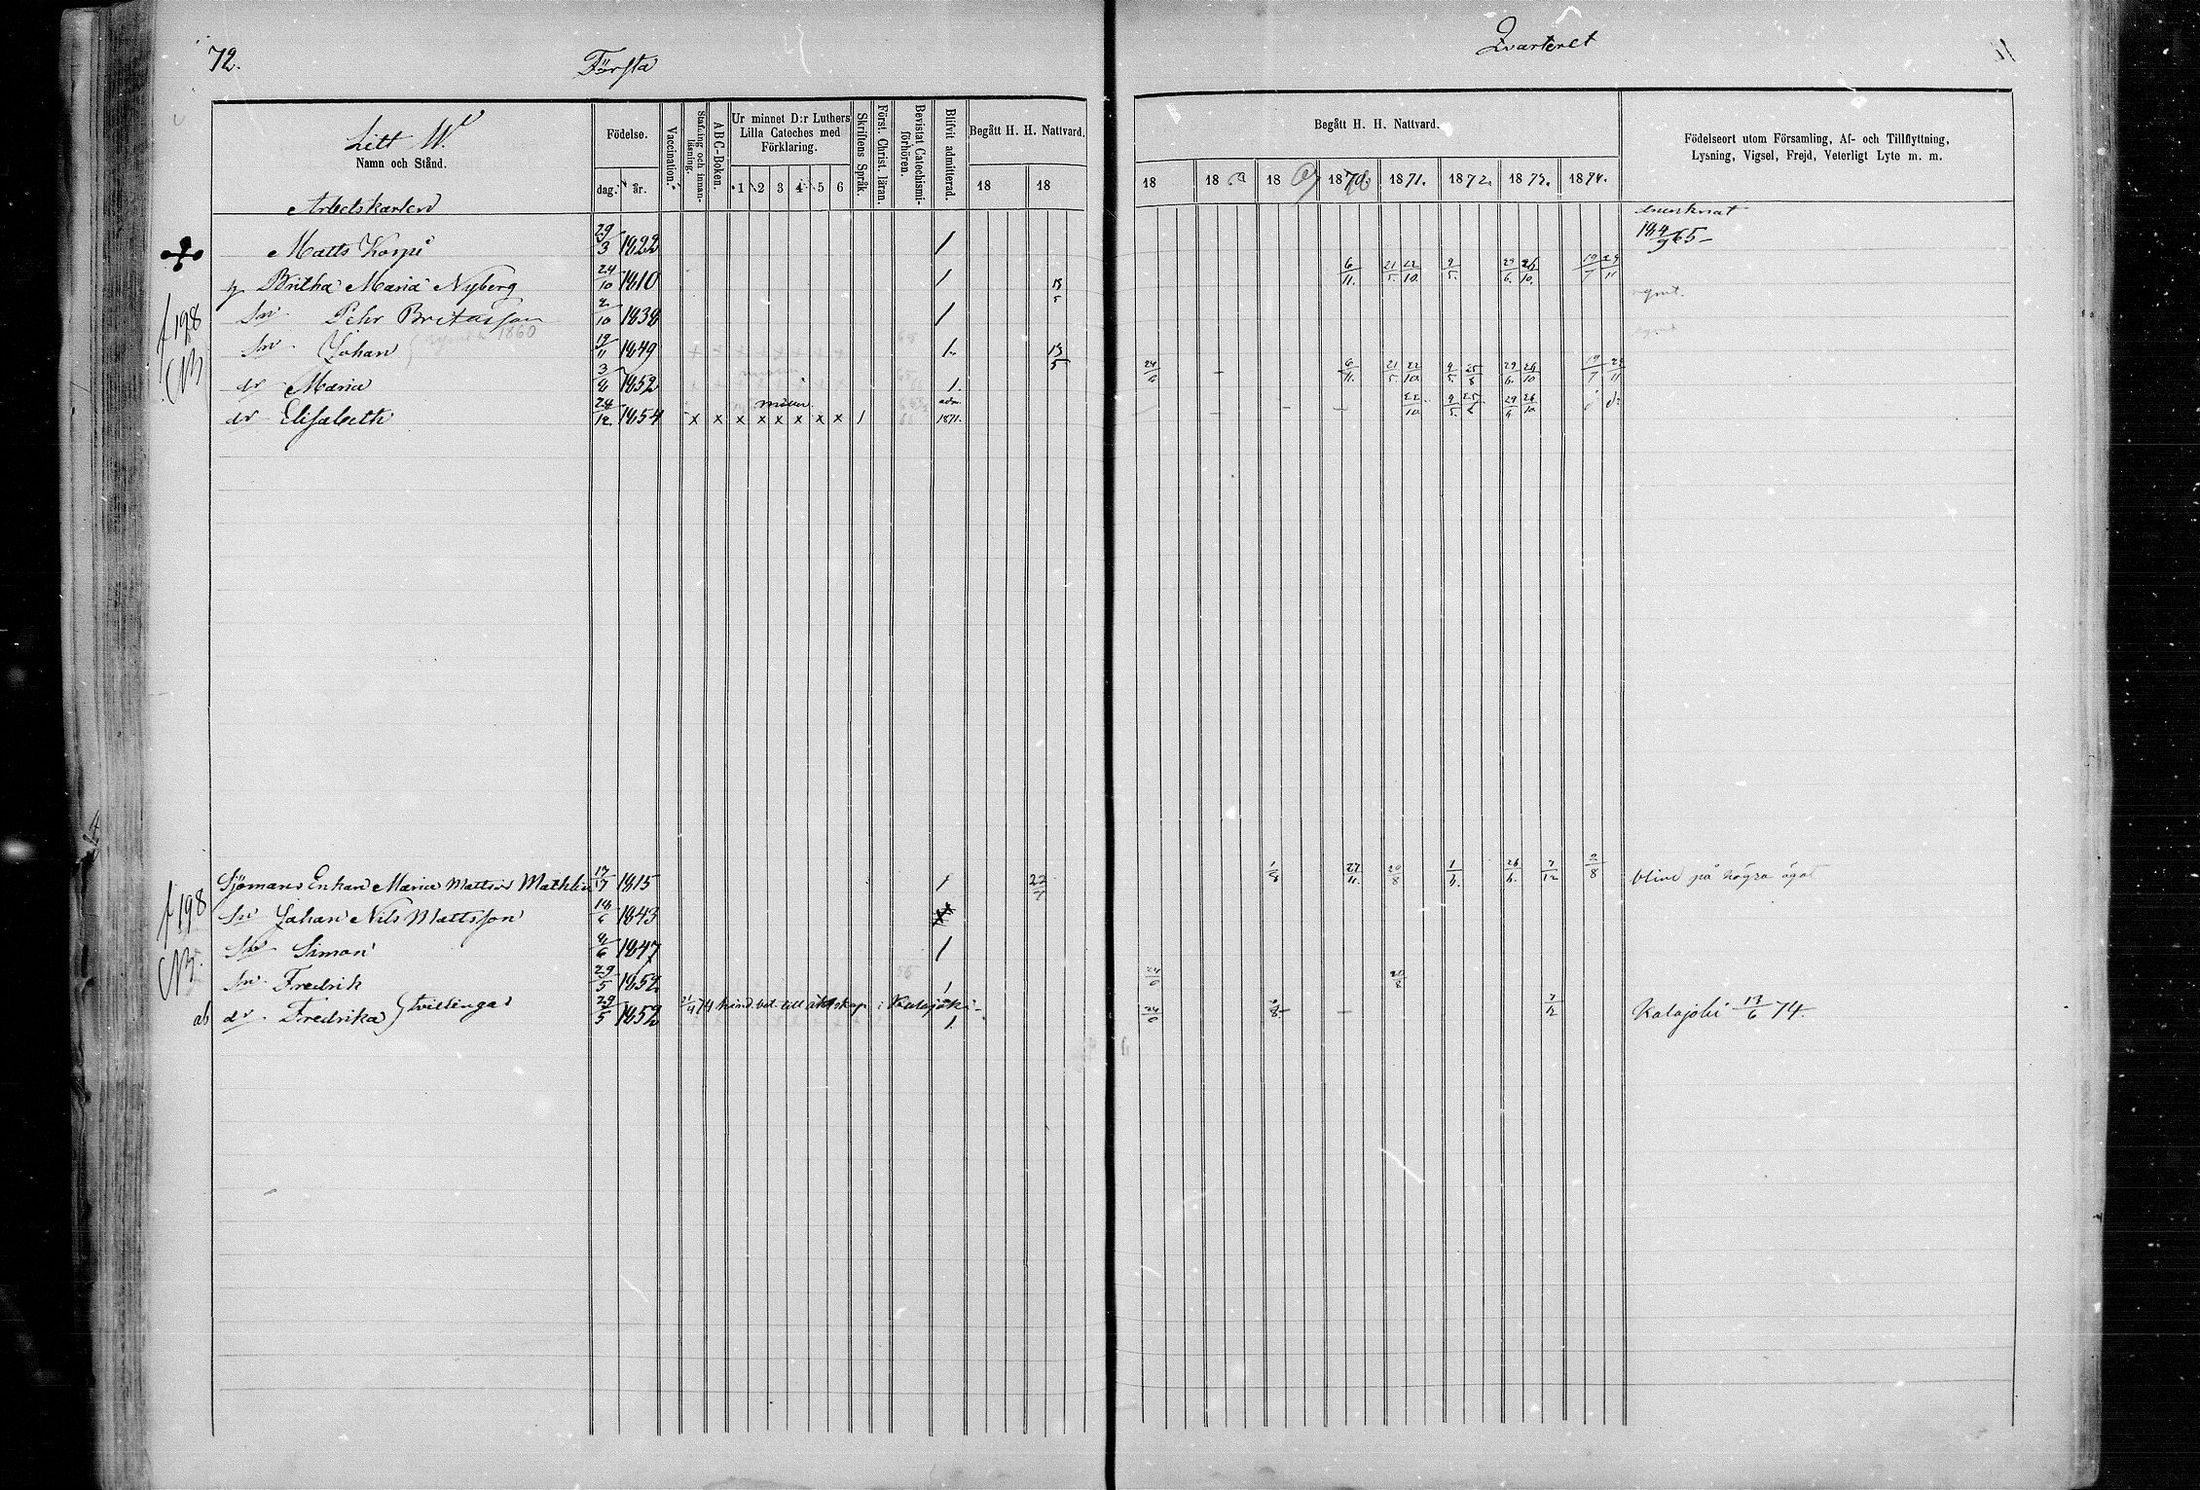 72.
Första
Qvarteret
Litt W.
Namn och Stånd.
Födelse.
dag. år.
Vaccination.
Stafning och innanläsning.
ABC-Boken.
Ur minnet D:r Luthers Lilla Cateches med Förklaring.
1 2 3 4 5 6
Skriftens Språk.
Först. Christ. läran.
Bevistat Catechismiförhören.
Blifvit admitterad.
Begått H. H. Nattvard.
18 18
Begått H. H. Nattvard.
18 18 18 1870 1871. 1872. 1873. 1874.
Födelseort utom Församling, Af- och Tillflyttning, Lysning, Vigsel, Frejd, Veterligt Lyte m. m.
Arbetskarlen
Matts Korpi 29/3 1822 /
Britha Maria Nyberg 24/10 1810 / 13/5 6/11. 21/5. 22/10. 9/5. 29/6. 26/10.
f 198
Sn Pehr Britasson 2/10 1838 /
Sn Johan 12/11 1849 1. 13/5
dr Maria 3/8 1852 1. 24/6 - 6/11. 21/5. 22/10. 9/5. 25/8 29/6. 26/10
dr Elisabeth 24/12. 1854 x x x x x x x x / adm. 1871. - - - 22/10 9/5. 29/6 26/10
Sjömans Enkan Maria Mattsd Mathlin 17/7 1815 / 22/7 20/8 7/12 2/8 blind på högra ögat
f 198
Sn Johan Nils Mattsson 18/6 1843
Sn Simon 9/6 1847 /
Sn Fredrik 29/5 1852
ab dr Fredrika tvillingar 29/5 1852 till äktskap i Kalajoki - 1. 7/12 Kalajoki 13/6 74.